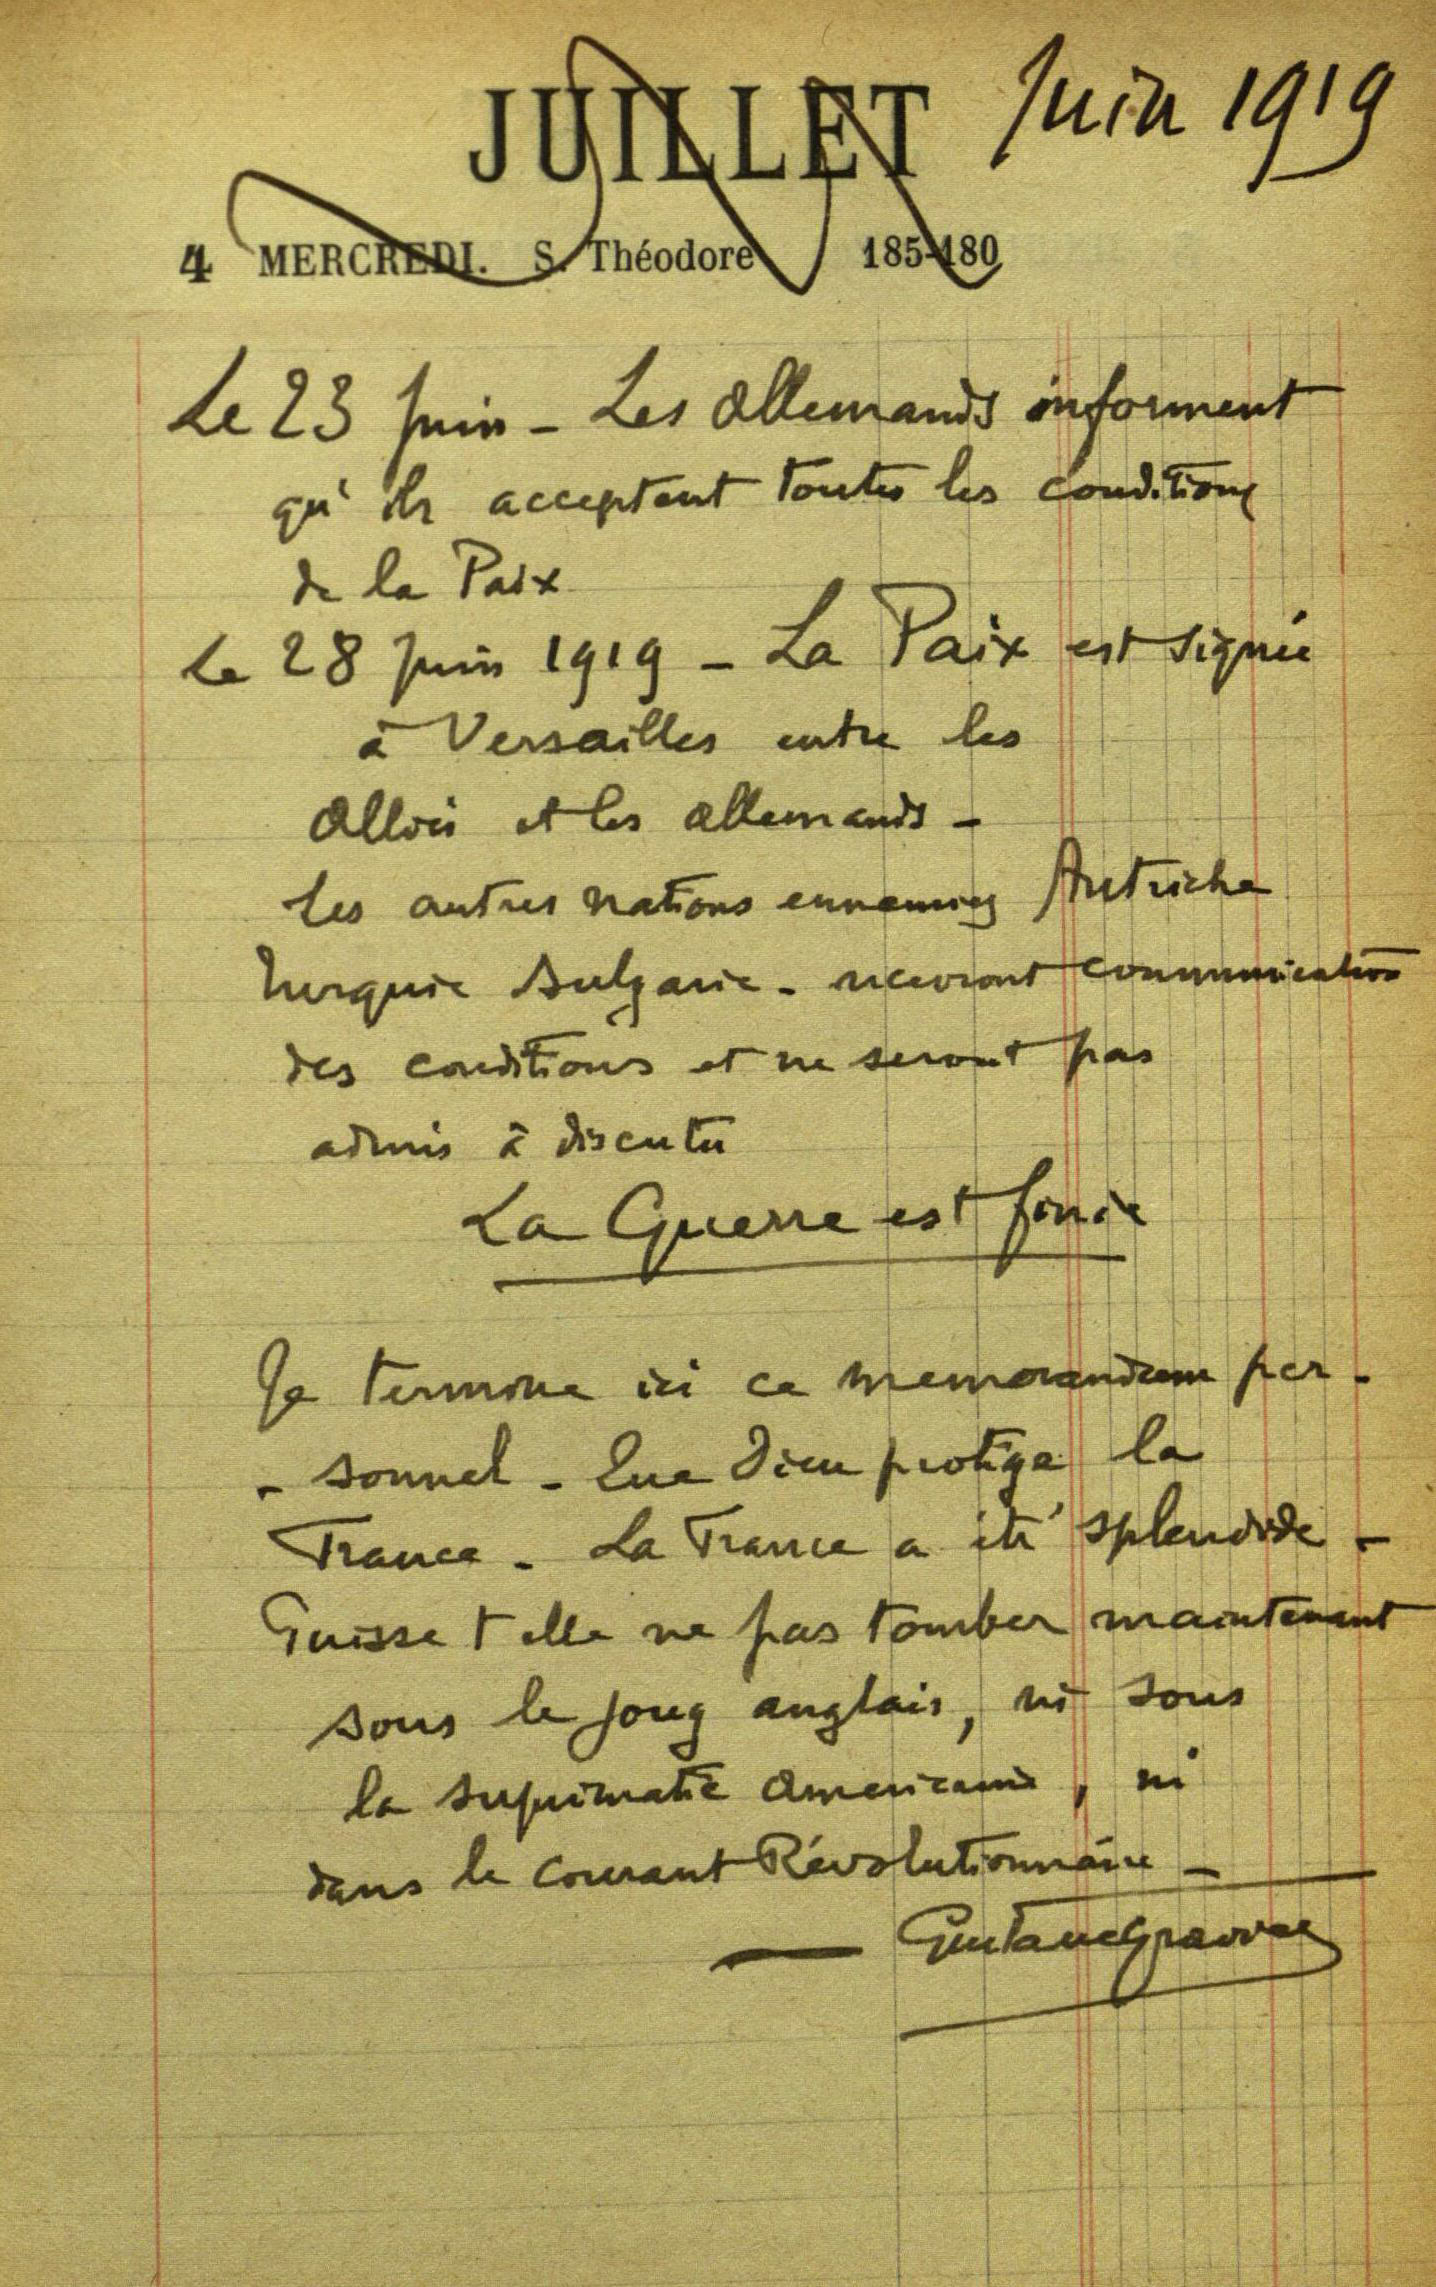 JUILLET Juin 1919
4 MERCREDI. S. Théodore 185-180
Le 23 Juin - Les Allemands informent
qu'ils acceptent toutes les conditions
de la Paix
Le 28 Juin 1919 - La Paix est signée
à Versailles entre les
Alliés et les Allemands -
Les autres nations ennemies Autriche
Turquie Bulgarie - recevront communication
des conditions et ne seront pas
admis à discuter
La Guerre est finie
Je termine ici ce memorandum per-
- sonnel - Que Dieu protège la
France - La France a été splendide -
Puisse t elle ne pas tomber maintenant
sous le joug anglais, ni sous
la suprematie americaine, ni
dans le courant Révolutionnaire -
Gustave